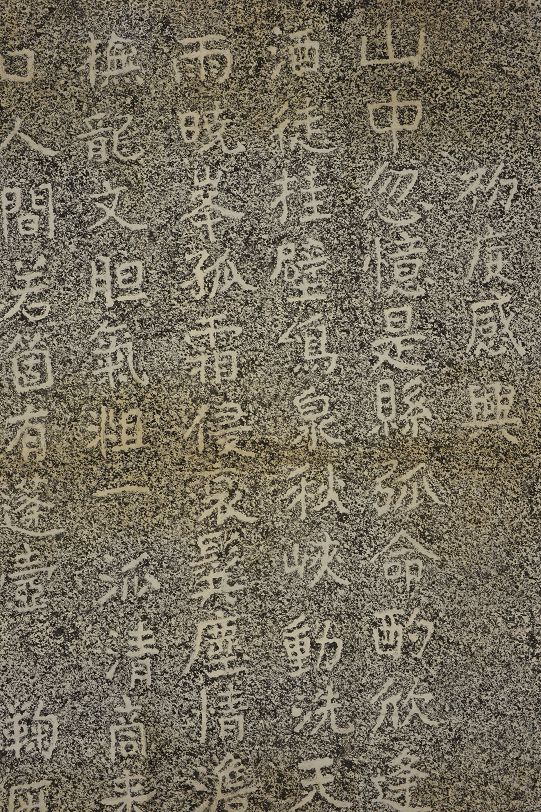 初度感興
山中忽憶是縣弧命酌欣逢
酒徒挂壁泉秋峽動洗天
雨晓峯孤霜侵衰塵情澹
撫龍文胆氣粗一泒清尚未
口人間若箇有蓬壺 鞠